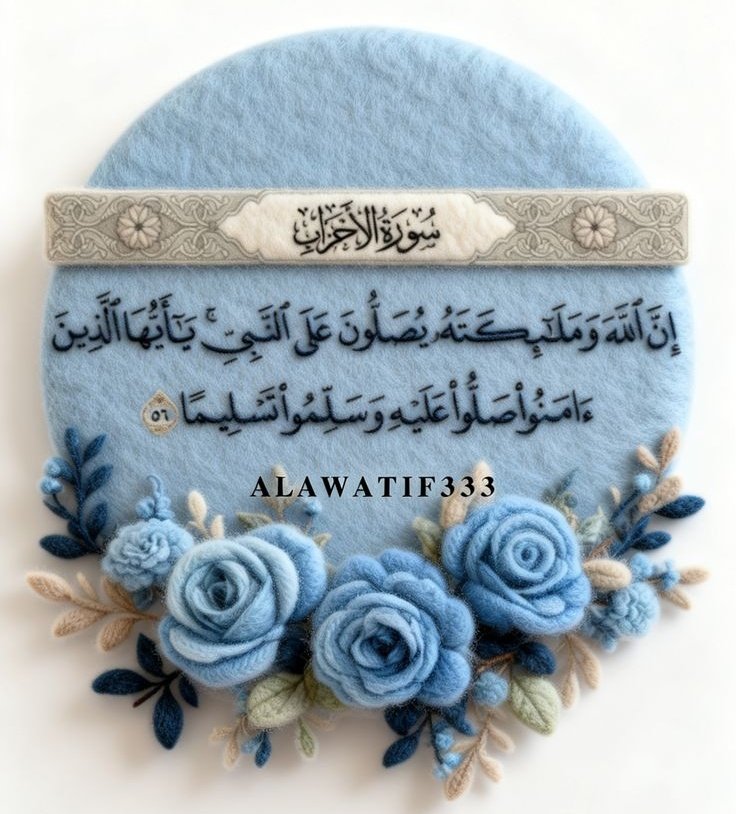 سُورَةُ الأَحْزَابِ
إِنَّ ٱللَّهَ وَمَلَـٰٓئِكَتَهُۥ يُصَلُّونَ عَلَى ٱلنَّبِىِّ ۚ يَـٰٓأَيُّهَا ٱلَّذِينَ
ءَامَنُوا۟ صَلُّوا۟ عَلَيْهِ وَسَلِّمُوا۟ تَسْلِيمًا ٥٦
ALAWATIF333